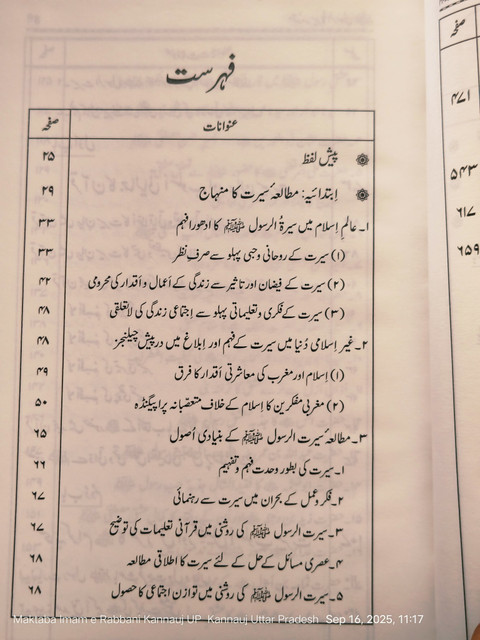 فہرست
عنوانات
صفحہ
پیش لفظ ۲۵
اِبتدائیہ: مطالعۂ سیرت کا منہاج ۲۹
۱۔ عالمِ اِسلام میں سیرۃُ الرسول ﷺ کا ادھورا فہم ۳۳
(۱) سیرت کے روحانی و حبی پہلو سے صرفِ نظر ۳۳
(۲) سیرت کے فیضان اور تاثیر سے زندگی کے اَعمال و اَقدار کی محرومی ۴۲
(۳) سیرت کے فکری و تعلیماتی پہلو سے اِجتماعی زندگی کی لاتعلقی ۴۸
۲۔ غیر اِسلامی دُنیا میں سیرت کے فہم اور اِبلاغ میں درپیش چیلنجز ۴۸
(۱) اِسلام اور مغرب کی معاشرتی اَقدار کا فرق ۴۹
(۲) مغربی مفکرین کا اِسلام کے خلاف متعصبانہ پراپیگنڈہ ۵۰
۳۔ مطالعۂ سیرت الرسول ﷺ کے بنیادی اُصول ۶۵
۱۔ سیرت کی بطور وحدت فہم و تفہیم ۶۶
۲۔ فکر و عمل کے بحران میں سیرت سے رہنمائی ۶۷
۳۔ سیرت الرسول ﷺ کی روشنی میں قرآنی تعلیمات کی توضیح ۶۷
۴۔ عصری مسائل کے حل کے لئے سیرت کا اطلاقی مطالعہ ۶۸
۵۔ سیرت الرسول ﷺ کی روشنی میں توازن اجتماعی کا حصول ۶۸
صفحہ
۴۷۱
۵۴۳
۶۱۷
۶۵۹
Maktaba Imam e Rabbani Kannauj UP Kannauj Uttar Pradesh Sep 16, 2025, 11:17